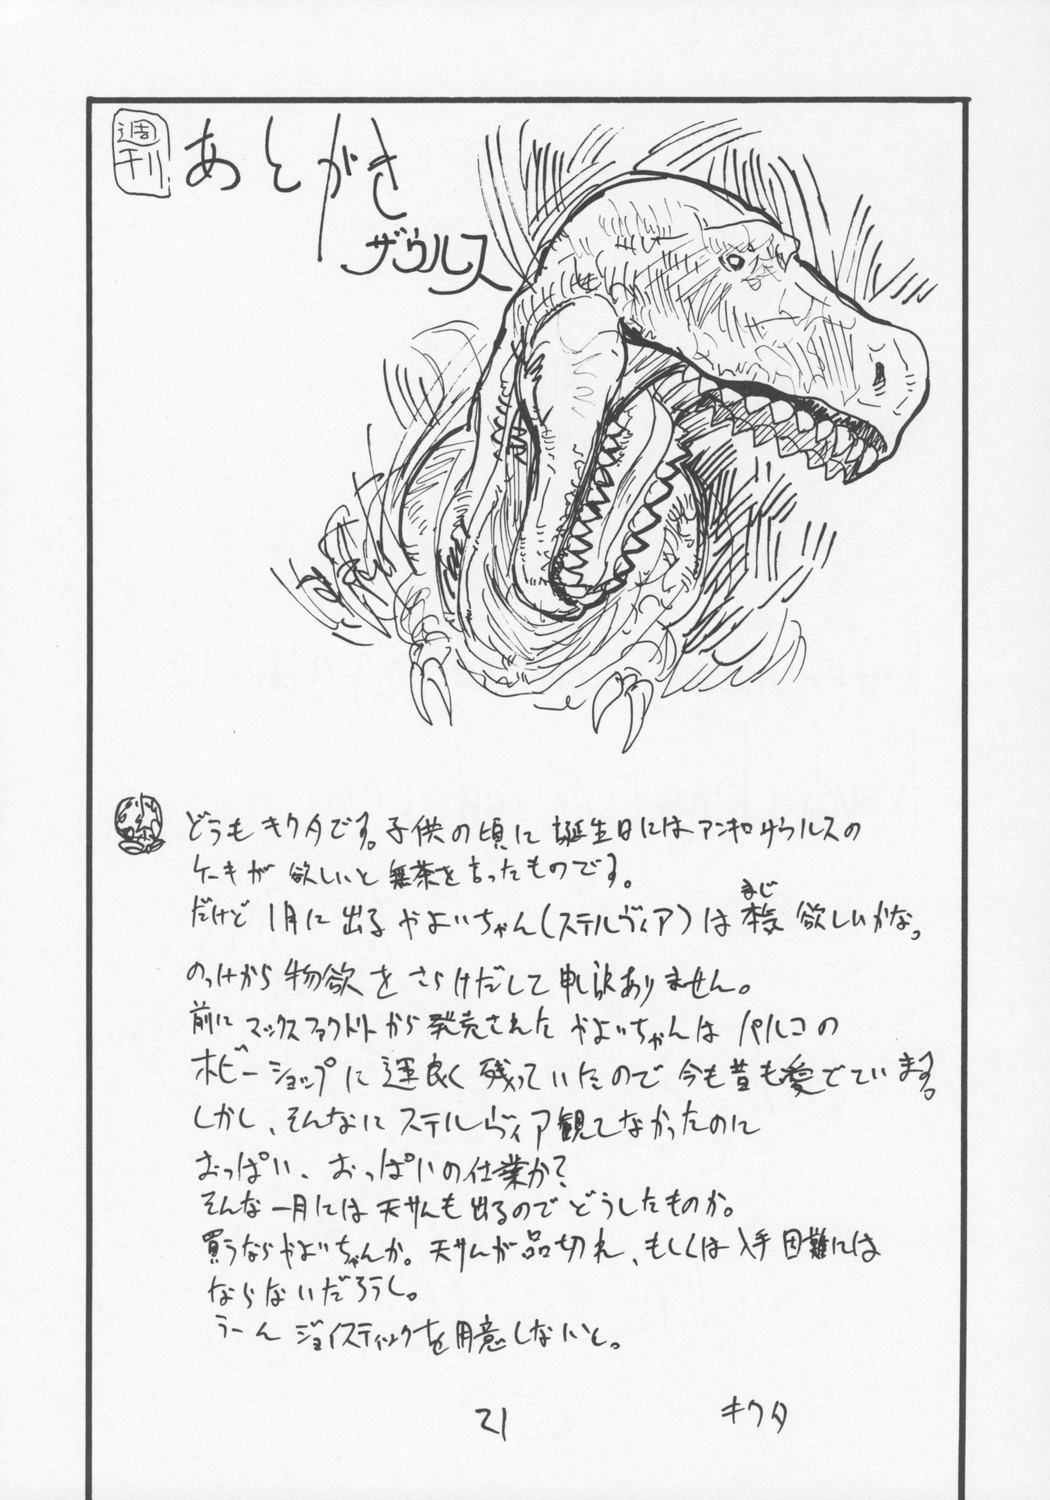 週刊
あとがき
ザウルス
どうもキクタです。子供の頃に誕生日にはアンキロザウルスの
ケーキが欲しいと無茶を言ったものです。
まじ
だけど1月に出るやよいちゃん(ステルヴィア)は本気欲しいかな。
のっけから物欲をさらけだして申し訳ありません。
前にマックスファクトリーから発売されたやよいちゃんはパルコの
ホビーショップに運良く残っていたので今も昔も愛でています。
しかし、そんなにステルヴィア観てなかったのに
おっぱい、おっぱいの仕業か?
そんな一月には天サんも出るのでどうしたものか。
買うならやよいちゃんか。天サんが品切れ、もしくは入手困難には
ならないだろうし。
うーんジョイスティックを用意しないと。
21
キクタ